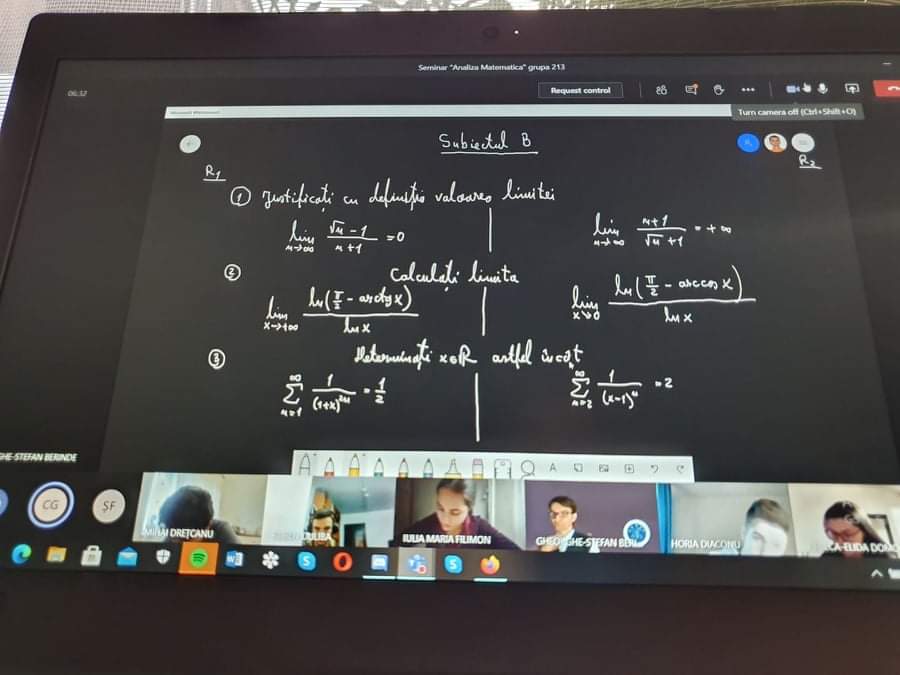 Seminar "Analiza Matematica" grupa 213
06:32
Request control
Turn camera off (Ctrl+Shift+O)
Subiectul B
R₁
R₂
① Justificați cu definiția valoarea limitei
lim n→∞ (√n - 1)/(n+1) = 0
lim n→∞ (n+1)/(√n + 1) = +∞
② Calculați limita
lim x→+∞ ln(π/2 - arctg x)/ln x
lim x↘0 ln(π/2 - arccos x)/ln x
③ Determinați x∈R astfel încât
∑ n=1 ∞ 1/(1+x)²ⁿ = 1/2
∑ n=2 ∞ 1/(x-1)ⁿ = 2
GHE-STEFAN BERINDE
CG
ȘF
MIHAI DREȚCANU
IULIA MARIA FILIMON
GHEORGHE-STEFAN BERI
HORIA DIACONU
CA-ELIDA DOMO